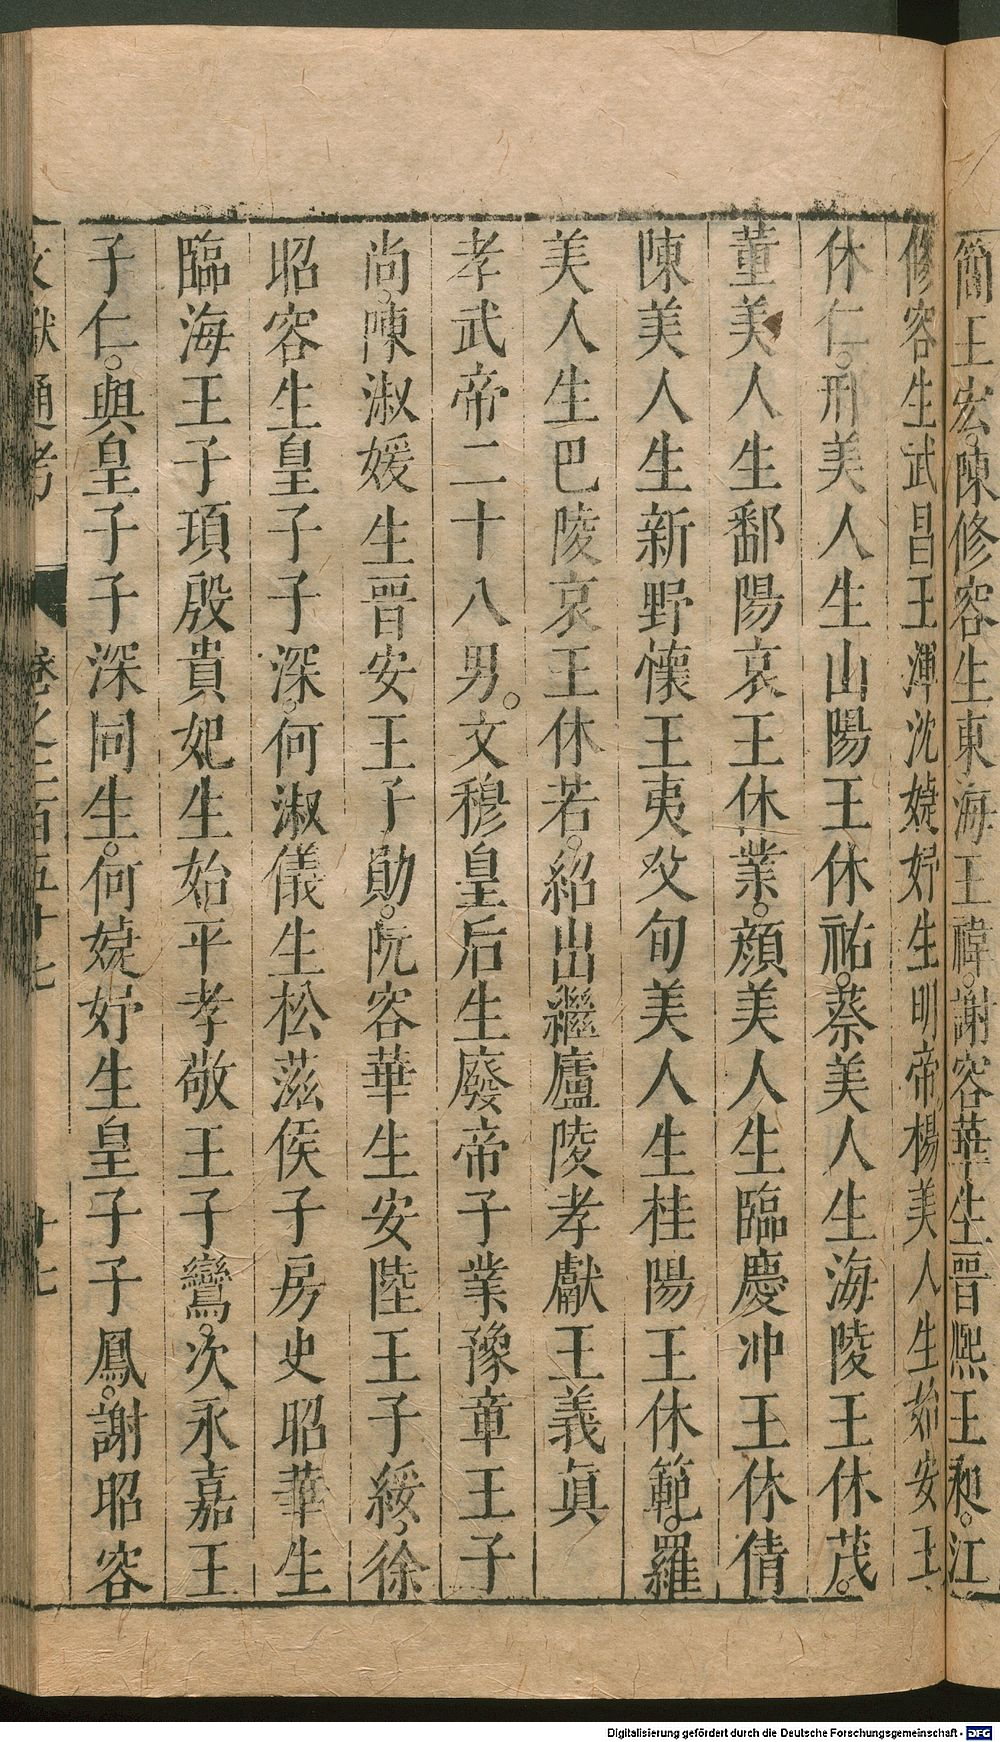 簡王宏。陳修容生東海王禕。謝容華生晉熙王昶。江
修容生武昌王渾沈婕妤生明帝楊美人生始安王
休仁。刑美人生山陽王休祐。蔡美人生海陵王休茂。
董美人生鄱陽哀王休業。顏美人生臨慶冲王休倩
陳美人生新野懷王夷父旬美人生桂陽王休範。羅
美人生巴陵哀王休若。紹出繼廬陵孝獻王義眞
孝武帝二十八男。文穆皇后生廢帝子業豫章王子
尚。陳淑媛生晉安王子勛。阮容華生安陸王子綏。徐
昭容生皇子子深。何淑儀生松滋侯子房史昭華生
臨海王子項殷貴妃生始平孝敬王子鸞。次永嘉王
子仁。與皇子子深同生。何婕妤生皇子子鳳。謝昭容
文獻通考 卷之二百五十七 十七
Digitalisierung gefördert durch die Deutsche Forschungsgemeinschaft - DFG